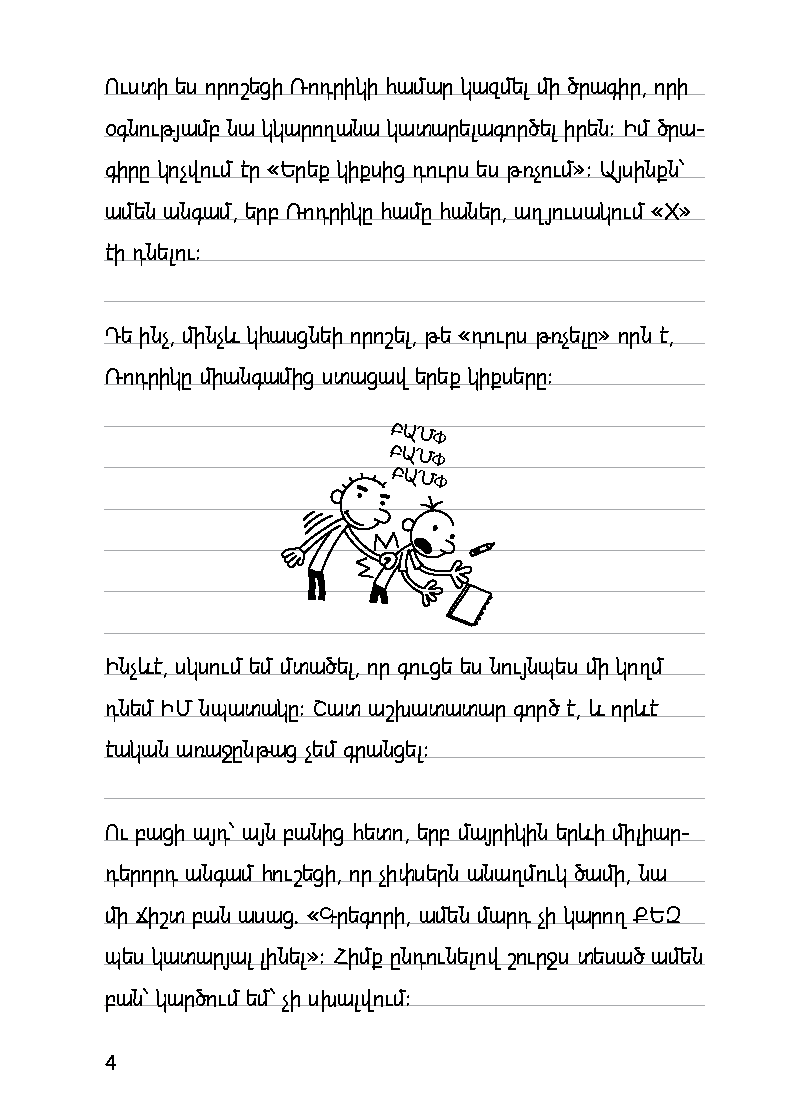 Ուստի ես որոշեցի Ռոդրիկի համար կազմել մի ծրագիր, որի
օգնությամբ նա կկարողանա կատարելագործել իրեն: Իմ ծրա-
գիրը կոչվում էր «Երեք կիքսից դուրս ես թռչում»: Այսինքն՝
ամեն անգամ, երբ Ռոդրիկը համը հաներ, աղյուսակում «X»
էի դնելու:
Դե ինչ, մինչև կհասցնեի որոշել, թե «դուրս թռչելը» որն է,
Ռոդրիկը միանգամից ստացավ երեք կիքսերը:
ԲԱՄՓ
ԲԱՄՓ
ԲԱՄՓ
Ինչևէ, սկսում եմ մտածել, որ գուցե ես նույնպես մի կողմ
դնեմ ԻՄ նպատակը: Շատ աշխատատար գործ է, և որևէ
էական առաջընթաց չեմ գրանցել:
Ու բացի այդ՝ այն բանից հետո, երբ մայրիկին երևի միլիար-
դերորդ անգամ հուշեցի, որ չիփսերն անաղմուկ ծամի, նա
մի ճիշտ բան ասաց. «Գրեգորի, ամեն մարդ չի կարող ՔԵԶ
պես կատարյալ լինել»: Հիմք ընդունելով շուրջս տեսած ամեն
բան՝ կարծում եմ՝ չի սխալվում:
4